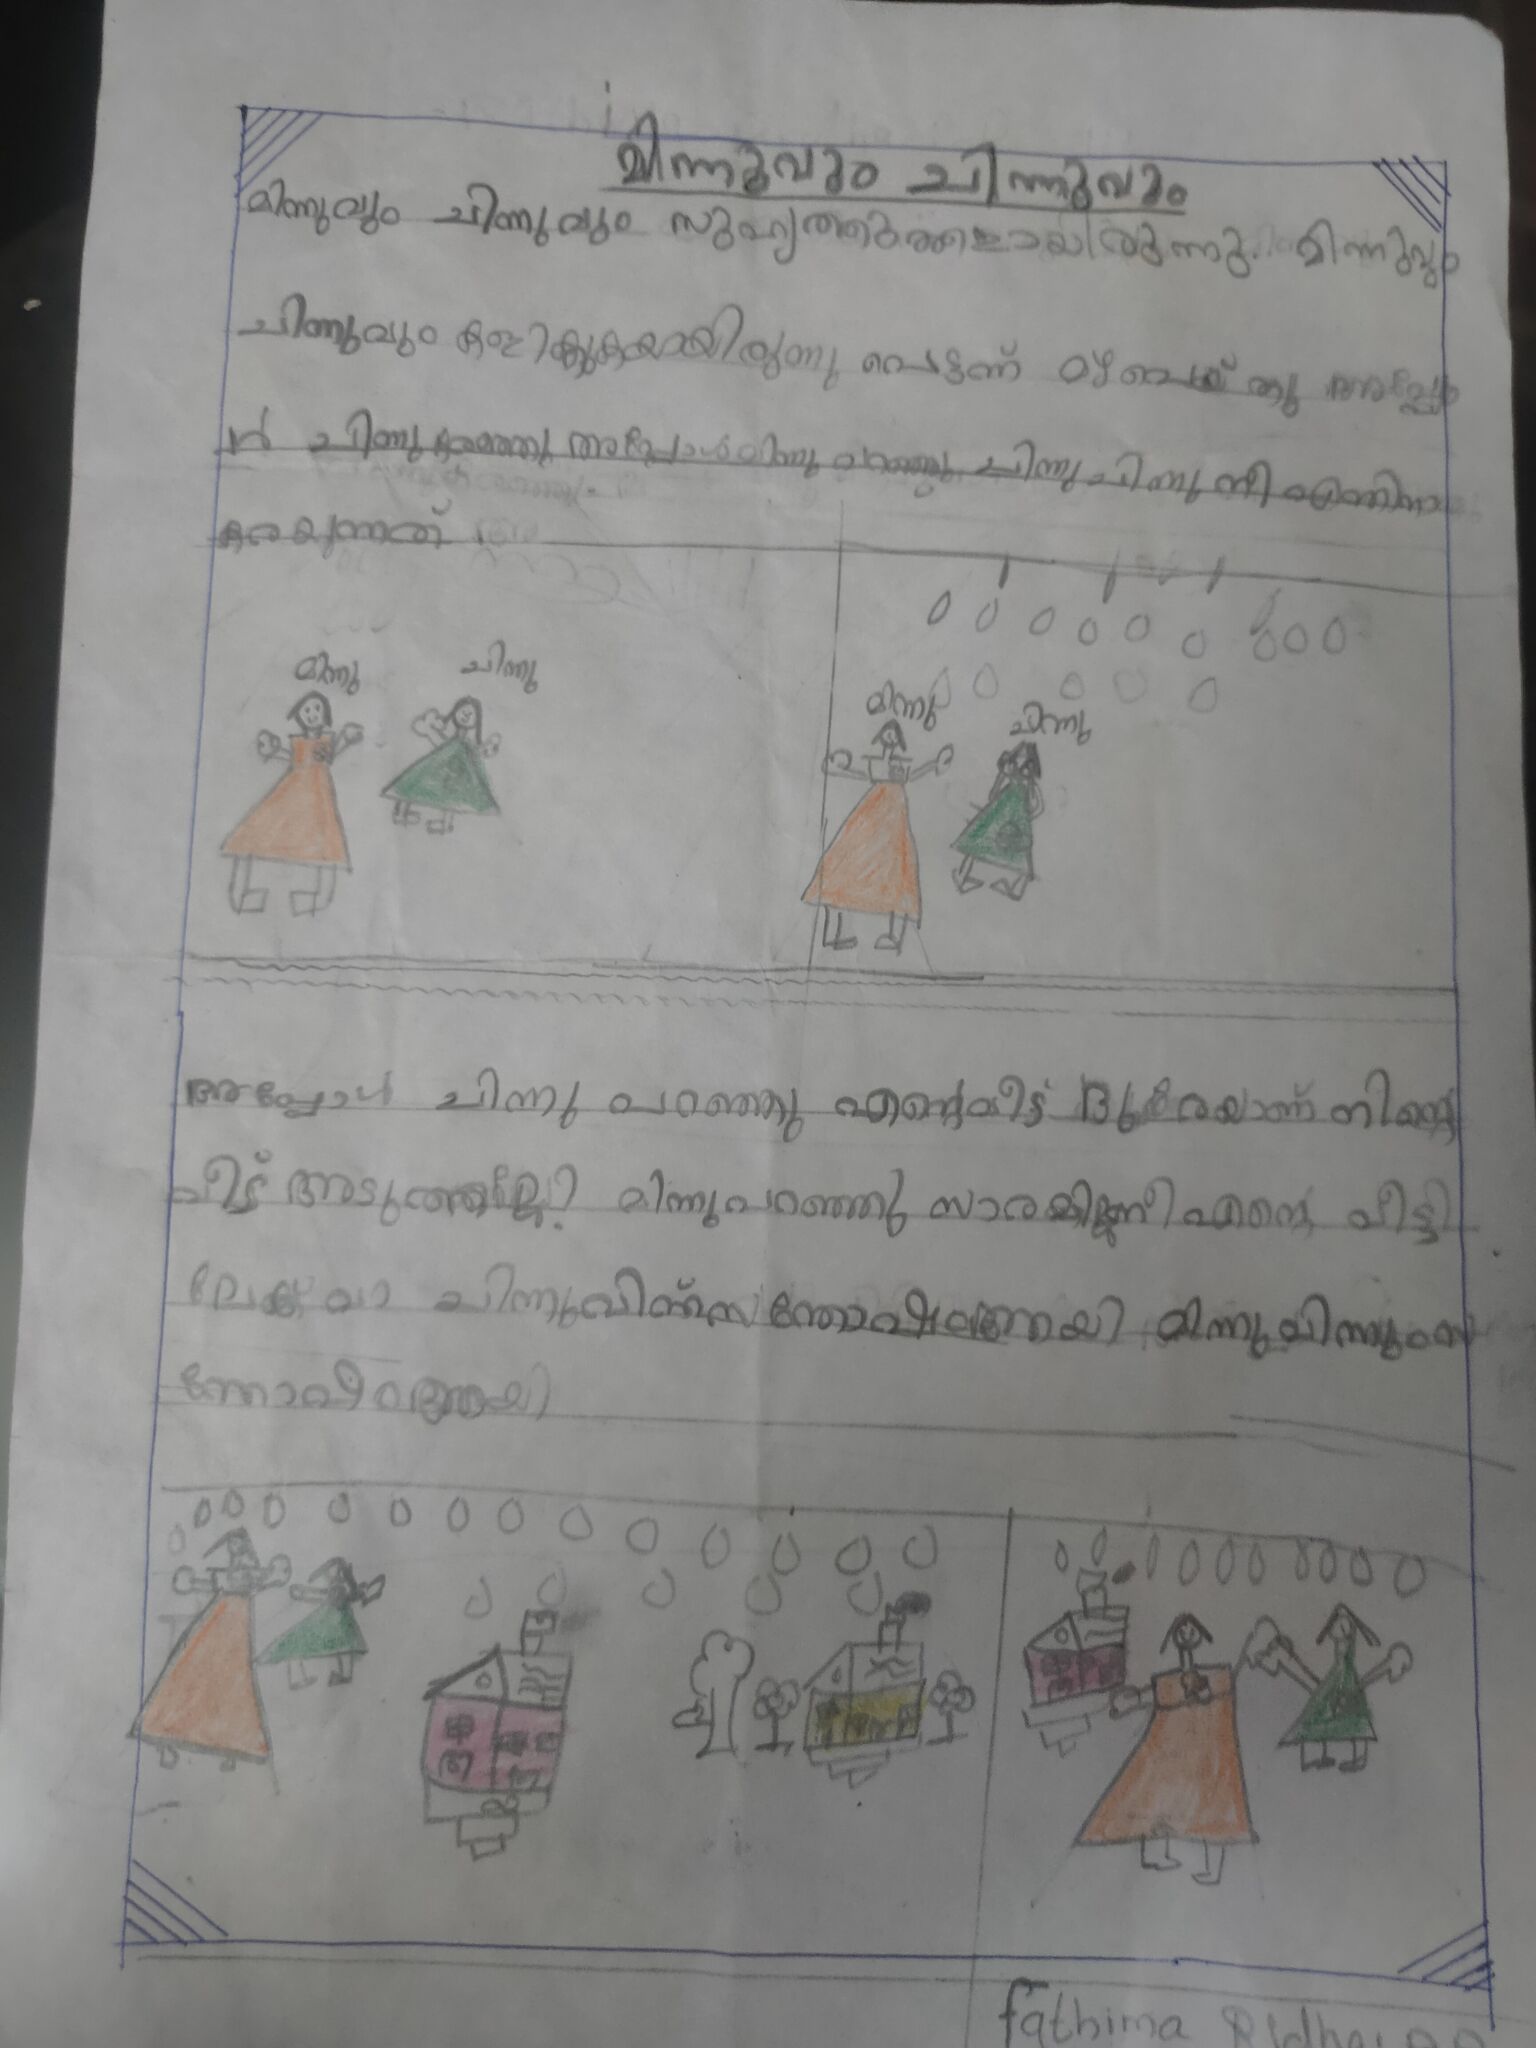 മിന്നുവും ചിന്നുവും
മിന്നുവും ചിന്നുവും സുഹൃത്തുത്തളായിരുന്നു. മിന്നുവും
ചിന്നുവും കളിക്കുകയായിരുന്നു പെട്ടന്ന് മഴപെയ്തു അപ്പോ
ൾ ചിന്നു കരഞ്ഞു അപ്പോൾ മിന്നു പറഞ്ഞു ചിന്നു ചിന്നു നീ എന്തിനാ
കരയുന്നത്
മിന്നു ചിന്നു
മിന്നു ചിന്നു
അപ്പോൾ ചിന്നു പറഞ്ഞു എന്റെ വീട് ദൂരെയാണ് നിന്റെ
വീട് അടുത്തല്ലേ? മിന്നു പറഞ്ഞു സാരമില്ല നീ എന്റെ വീട്ടി
ലേക്ക് വാ ചിന്നുവിന് സന്തോഷമായി മിന്നു
Fathima